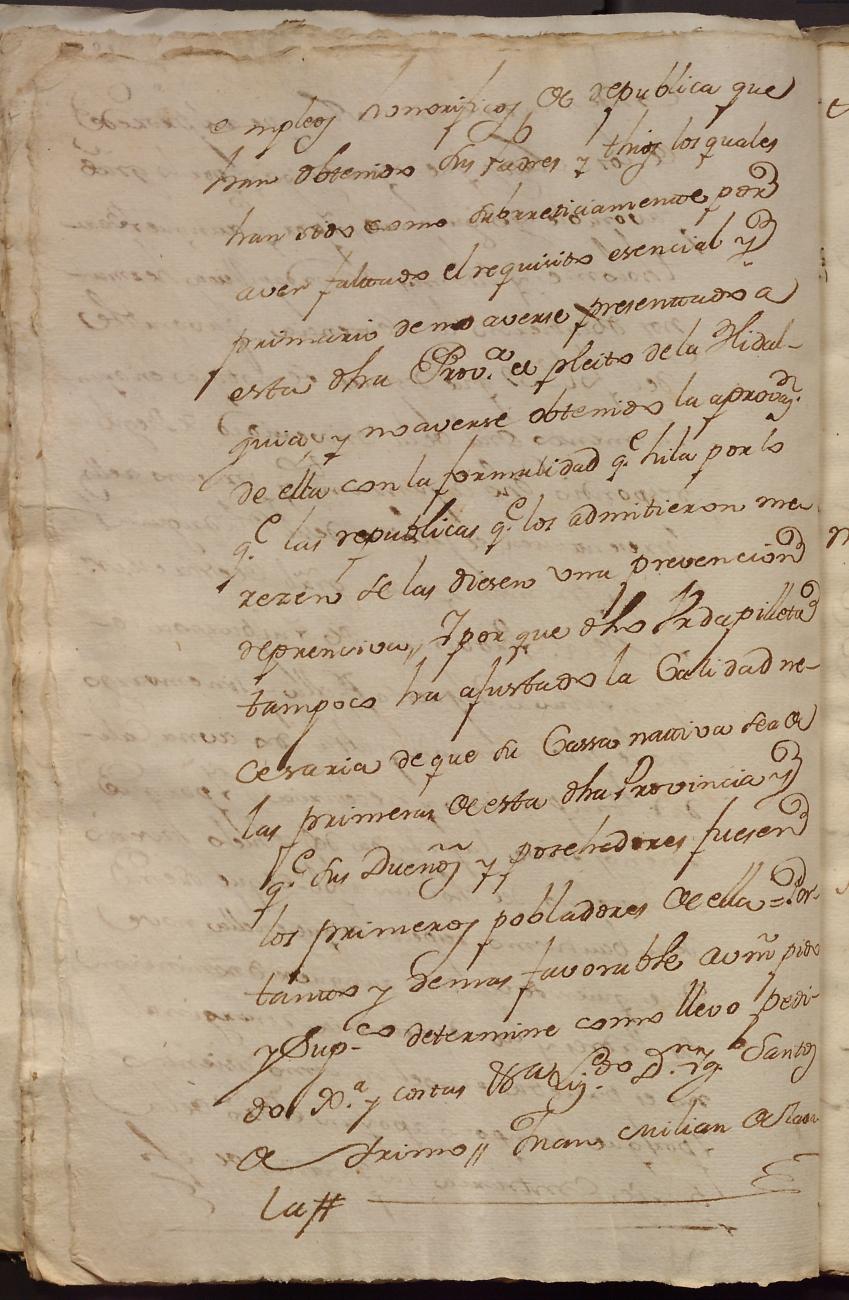 empleos honorificos de republica que
han obtenido sus Padres y thios los quales
han sido como subrreticiamente por
aver faltado el requisito esencial y
primario de no averse presentado a
esta dha Prov.ª el pleito de la Hidal-
guia, y no averse obtenido la aprovon.
de ella con la formalidad q.e hila por lo
q.e las republicas q.e los admitieron me
rezen se las diesen una prevencion
deprensiva,, Y por que dho Ardapilleta
tampoco ha ajustado la Calidad ne-
cesaria de que su Cassa nativa sea de
las primeras de esta dha Provincia y
q.e sus Dueños y posehedores fuesen
los primeros pobladores de ella = Por
tanto y demas favorable a vm pido
y Sup.co determine como llevo pedi-
do J.ª y costas &ª Liz.do D.n Santos
de Primo,, Juan Milian de
la #